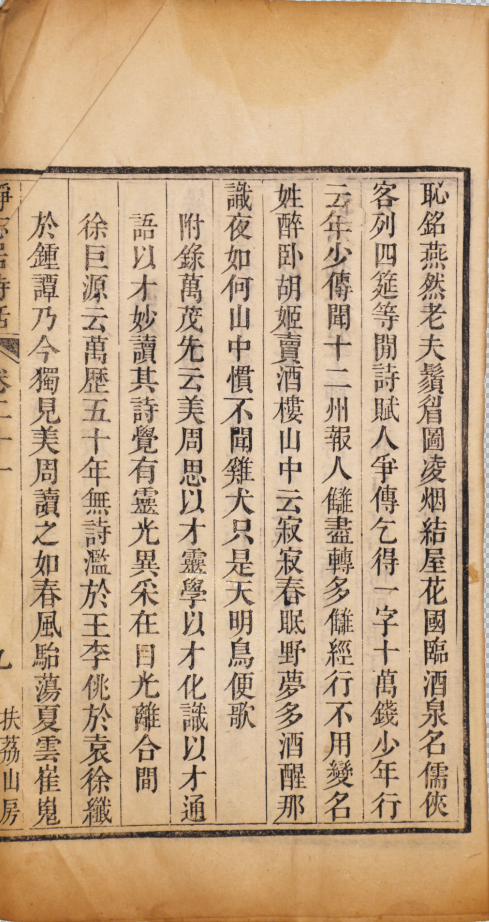 恥銘燕然老夫鬚眉圖凌烟結屋花國臨酒泉名儒俠
客列四筵等閒詩賦人爭傳乞得一字十萬錢少年行
云年少傳聞十二州報人讎盡轉多讎經行不用變名
姓醉卧胡姬賣酒樓山中云寂寂春眠野夢多酒醒那
識夜如何山中慣不聞雞犬只是天明鳥便歌
附錄萬茂先云美周思以才靈學以才化識以才通
語以才妙讀其詩覺有靈光異采在目光離合間
徐巨源云萬歷五十年無詩濫於王李佻於袁徐纖
於鍾譚乃今獨見美周讀之如春風駘蕩夏雲崔嵬
靜志居詩話 卷二十一 九 扶荔山房